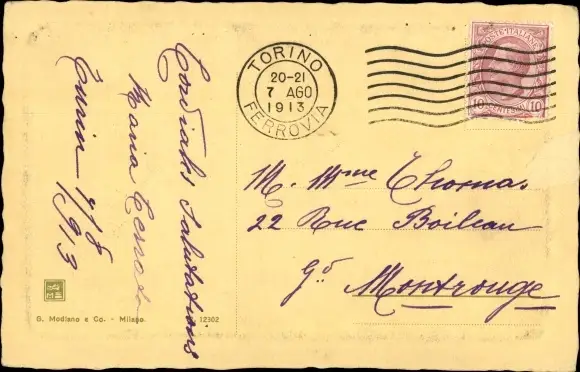 Cordiales Salutations
Maria
Turin 7/8
1913
TORINO
20-21
7 AGO
1913
FERROVIA
POSTE ITALIANE
10 CENTESIMI 10
M. Mme Thomas
22 Rue Boileau
Gd Montrouge
G. Modiano e Co. - Milano.
12302